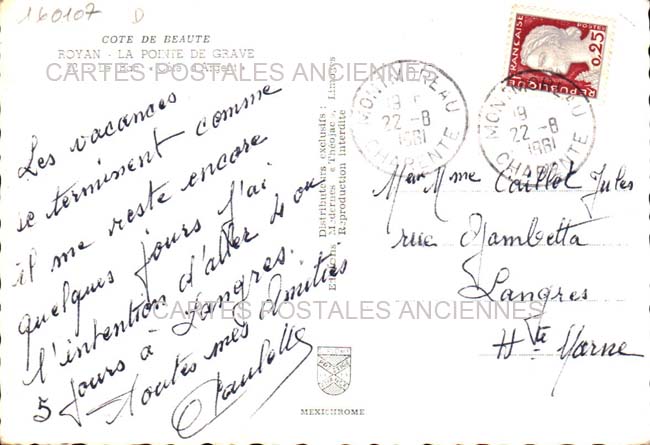 160107 D
COTE DE BEAUTE
ROYAN - LA POINTE DE GRAVE
Le Bac - Côte d'Argent
CARTES POSTALES ANCIENNES
Les vacances
se terminent comme
il me reste encore
quelques jours j'ai
l'intention d'aller 4 ou
5 jours à Langres.
Toutes mes Amitiés
Paulette
Distributeurs exclusifs :
Editions Modernes « Théojac », Limoges
Reproduction interdite
MONTMOREAU
19 H
22 - 8
1961
CHARENTE
MONTMOREAU
19
22 - 8
1961
CHARENTE
FRANÇAISE
POSTES
0,25
REPUBLIQUE
M et Mme Caillot Jules
rue Gambetta
Langres
Hte Marne
CARTES POSTALES ANCIENNES
MEXICHROME